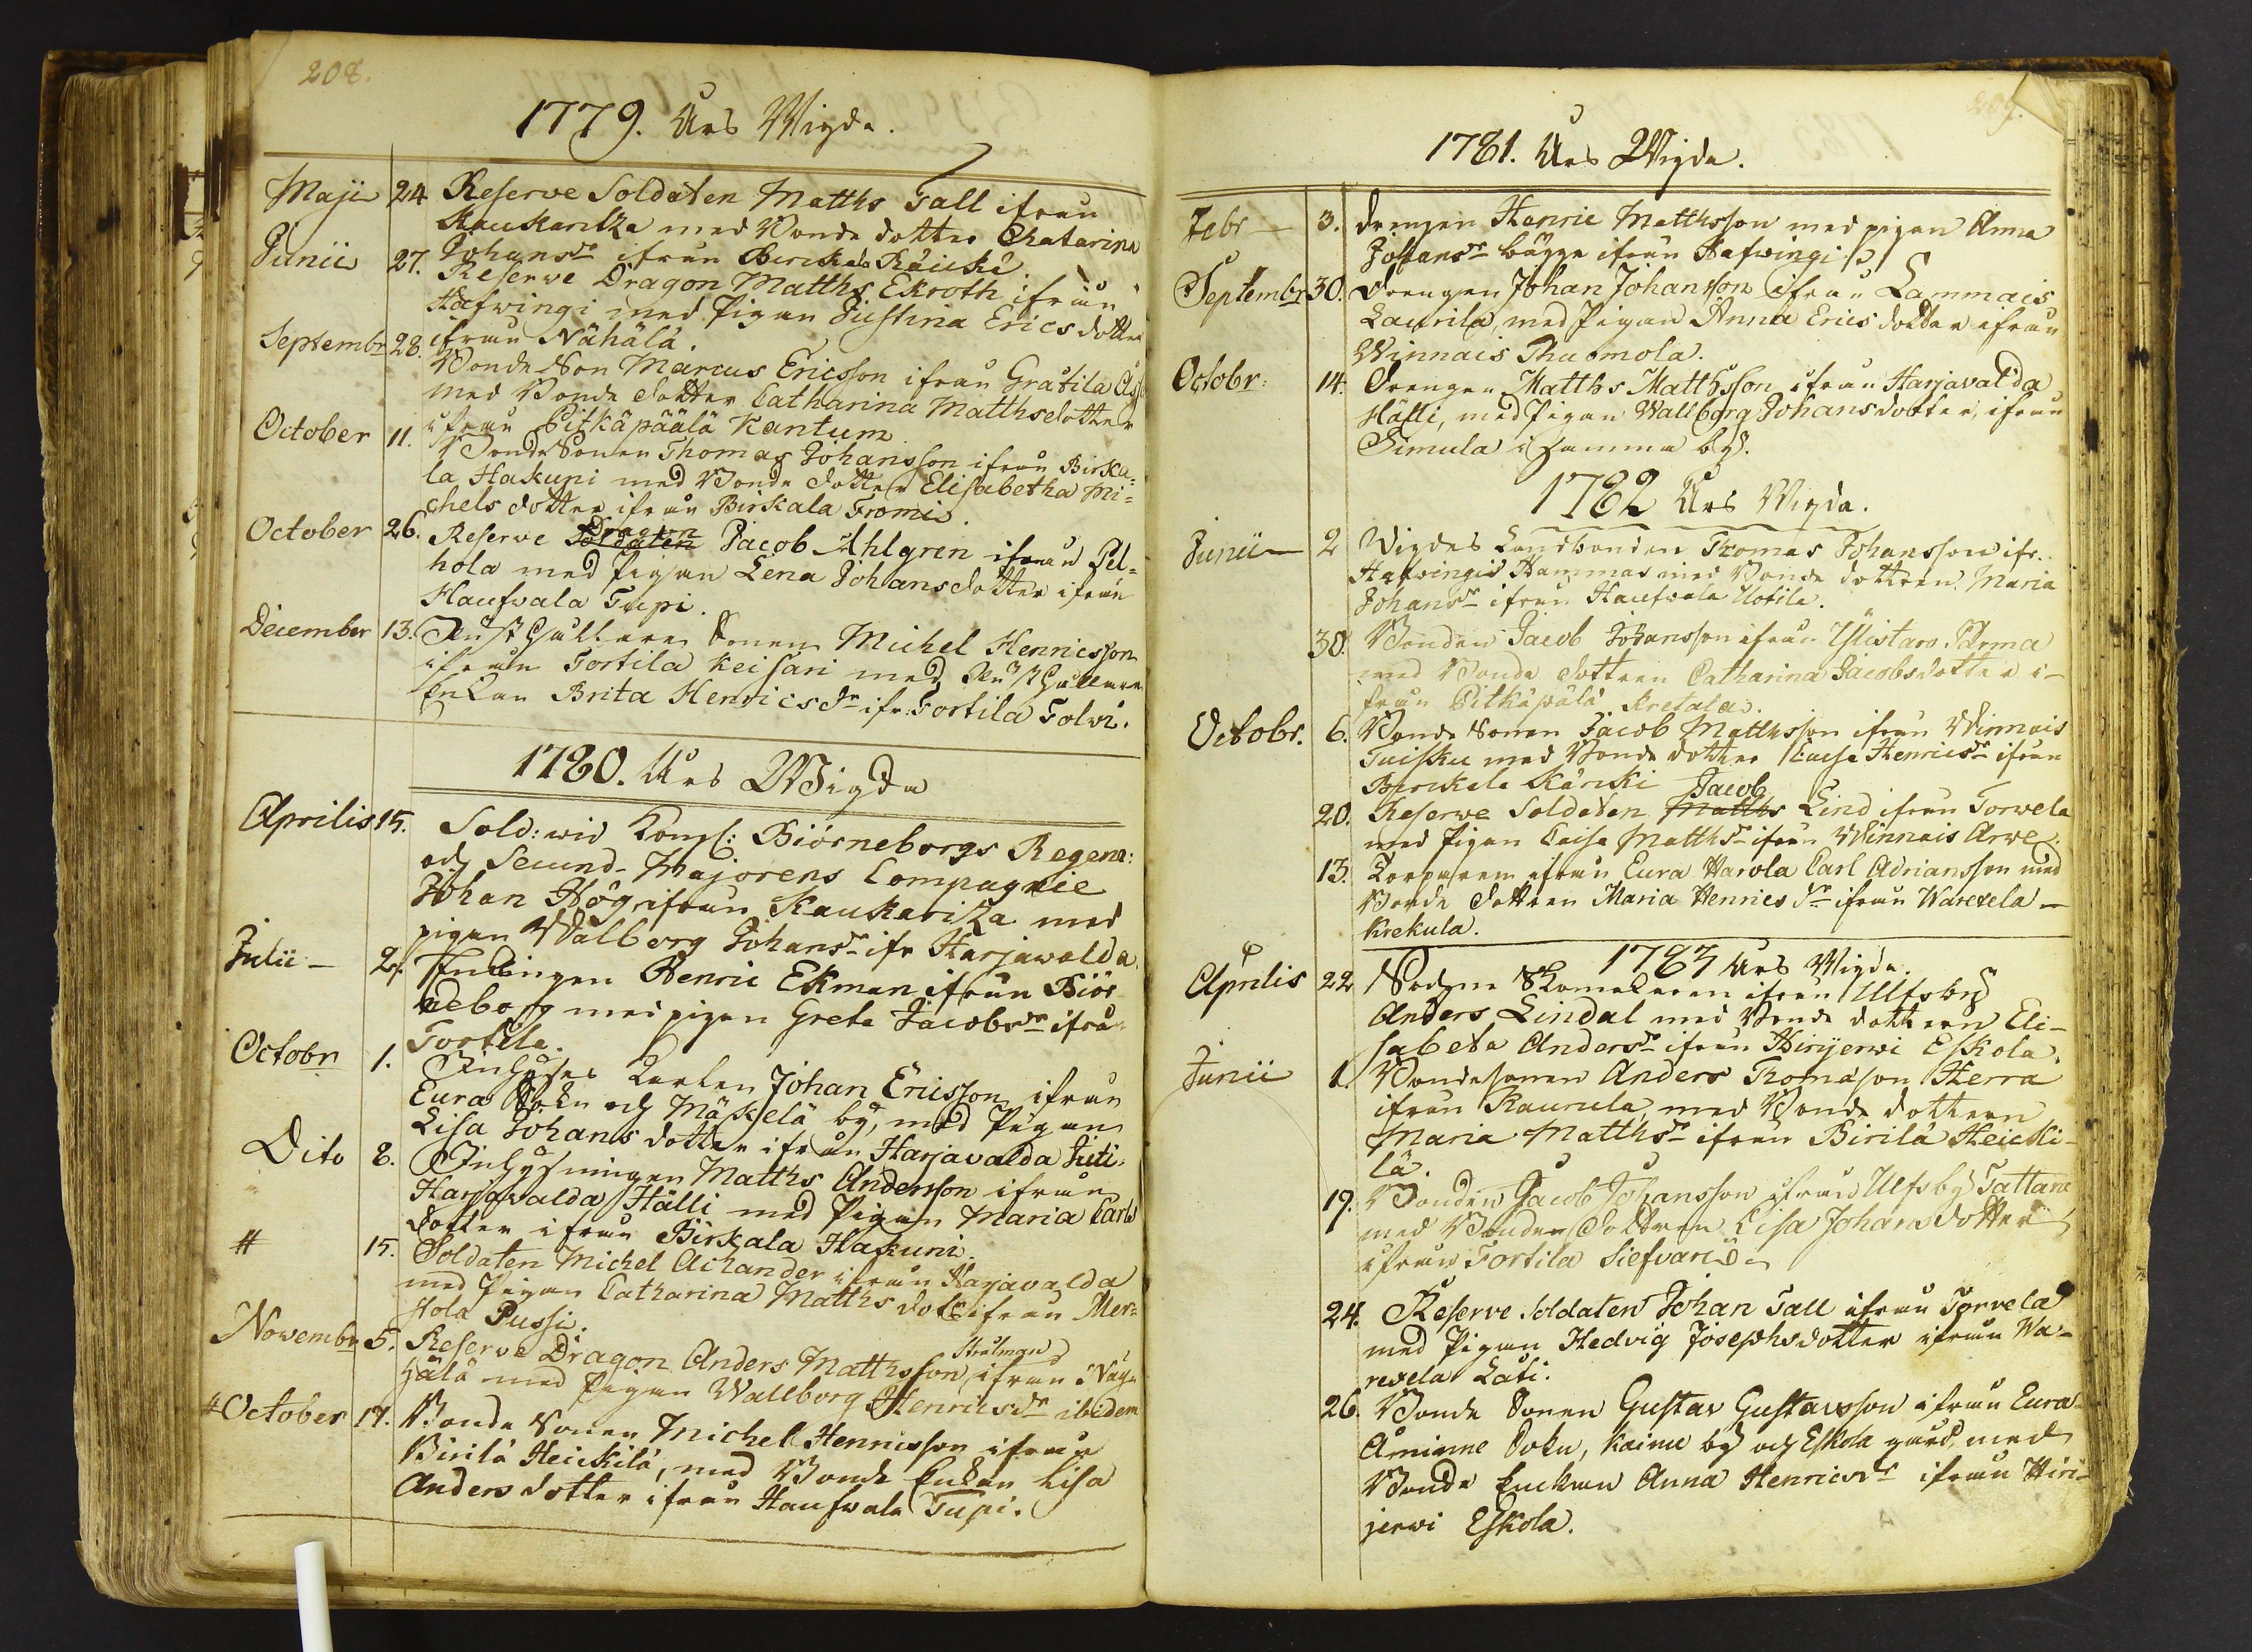 208.
1779. Års Wigde.
Maji 24 Reserve Soldaten Matths Tall ifrån
Kaukaritza med Bonde dotter Chatarina
Johansdr ifrån Birckala
Junii 27. Reserve Dragon Matths Ekroth ifrån
Hafwingi med Pigan Justina Ericsdotter
ifrån Nähälä.
Septembr 28. Bonde Son Marcus Ericsson ifrån Gratila
med Bonde dotter Catharina Matthsdotter
ifrån Pitkäpäälä Kantum
October 11. Bonde Sonen Thomas Johansson ifrån Birka=
la Hakuni med Bonde dotter Elisabetha Mi=
chels dotter ifrån Birkala Fromi.
October 26. Reserve Dragon Soldaten Jacob Ahlgren ifrån Pel=
hola med Pigan Lena Johansdotter ifrån
Haufwala Tupi.
December 13. Rusthållare Sonen Michel Henricsson
ifrån Tortila Keisari med Rusthållare
Enkan Brita Henricsdr ifr: Tortila Tolvi.
1780. Års Wigda
Aprilis 15. Sold: wid Kongl: Biörneborgs Regem:
och Secund-Majorens Compagnie
Johan Hög ifrån Kaukaritza med
pigan Walborg Johansdr ifr Harjawalda.
Julii - 2. Henric Ekman ifrån Biör
neborg med pigan Greta Jacobsdr ifrån
Tortila.
Octobr 1. Inhyses Karlen Johan Ericsson ifrån
Eura Sokn och Mäkselä by, med Pigan
Lisa Johans dotter ifrån Harjavalda Juti.
Dito 8. Inhysningen Matths Andersson ifrån
Harjavalda Hälli med Pigan Maria Carls
dotter ifrån Birkala Hakuni.
# 15. Soldaten Michel Achander ifrån Harjavalda
med Pigan Catharina Matths dotr ifrån Mer=
stola Pussi.
Novembr 5. Reserve Dragon Anders Matthsson Strålman ifrån Näy=
hälä med Pigan Wallborg Henricsdr ibidem
# October 17. Bonde Sonen Michel Henricsson ifrån
Birilä Heickilä, med Bonde Enkan Lisa
Anders dotter ifrån Haufwala Tupi.
209.
1781. Års Wigda.
Febr - 3. drengen Henric Matthsson med pigan Anna
Johansdr bägge ifrån Hafwingi
Septembr 30. Drengen Johan Johansson ifrån Lammais
Laurila, med Pigan Anna Erics dotter ifrån
Winnais Thuomola.
Octobr: 14. Drengen Matths Matthsson ifrån Harjavalda
Hälli, med Pigan Wallborg Johansdotter, ifrån
Simula i samma by.
1782 Års Wigda.
Junii - 2 Wigdes Landbonden Thomas Johansson ifr.
Hafwingis Hammar med Bonde dottren Maria
Johansdr ifrån Haufwala Uotila.
30. Bonden Jacob Johansson ifrån Ylistaro Parma
med Bonde dottren Catharina Jacobsdotter i-
från Pitkäpälä Kretala.
Octobr. 6. Bonde Sonen Jacob Matthsson ifrån Winnais
Tuisku med Bonde dotter Caisa Henricsdr ifrån
Birckala Kärcki
20. Reserve Soldaten Jacob Matths Lind ifrån Torwela
med Pigan Caisa Matthsdr ifrån Winnais Arwe.
13. Korporen ifrån Eura Harola Carl Adriansson med
Bonde dottren Maria Henricsdr ifrån Warevela -
Krekula.
1783 Års Wigda.
Aprilis 22 Sockne Skomakaren ifrån Ulfsby
Anders Lindal med Bonde dottren Eli-
sabeta Andersdr ifrån Hirijerwi Eskola.
Junii 1. Bondesonen Anders Thomasson Herra
ifrån Raunela, med Bonde dottren
Maria Matthsdr ifrån Birilä Heicki-
lä.
19. Bonden Jacob Johansson ifrån Ulfsby Tattara
med Bonden dottren Lisa Johans dotter
ifrån Tortila Siefvari
24. Reserve Soldaten Johan Tall ifrån Torvela
med Pigan Hedvig Josephsdotter ifrån Wa-
revela Lati.
26. Bonde Sonen Gustav Gustavsson ifrån Eura
Åminne Sokn, Kainu by och Eskola gård, med
Bonde Enckan Anna Henricsdr ifrån Hiri-
jerwi Eskola.